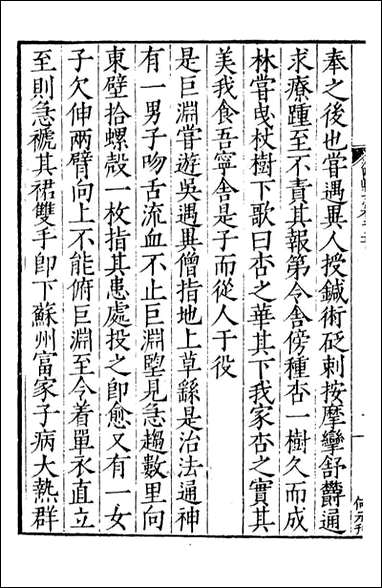 奉之後也嘗遇異人授鍼術砭刺按摩攣舒欝通
求療踵至不責其報第令舍傍種杏一樹久而成
林嘗曳杖樹下歌曰杏之華其下我家杏之實其
美我食吾寧舍是子而從人于役
是巨淵嘗遊吳遇異僧指地上草繇是治法通神
有一男子吻舌流血不止巨淵朢見急趨數里向
東壁拾螺殼一枚指其患處投之卽愈又有一女
子欠伸兩臂向上不能俯巨淵至令着單衣直立
至則急褫其裙雙手卽下蘇州富家子病大熱群